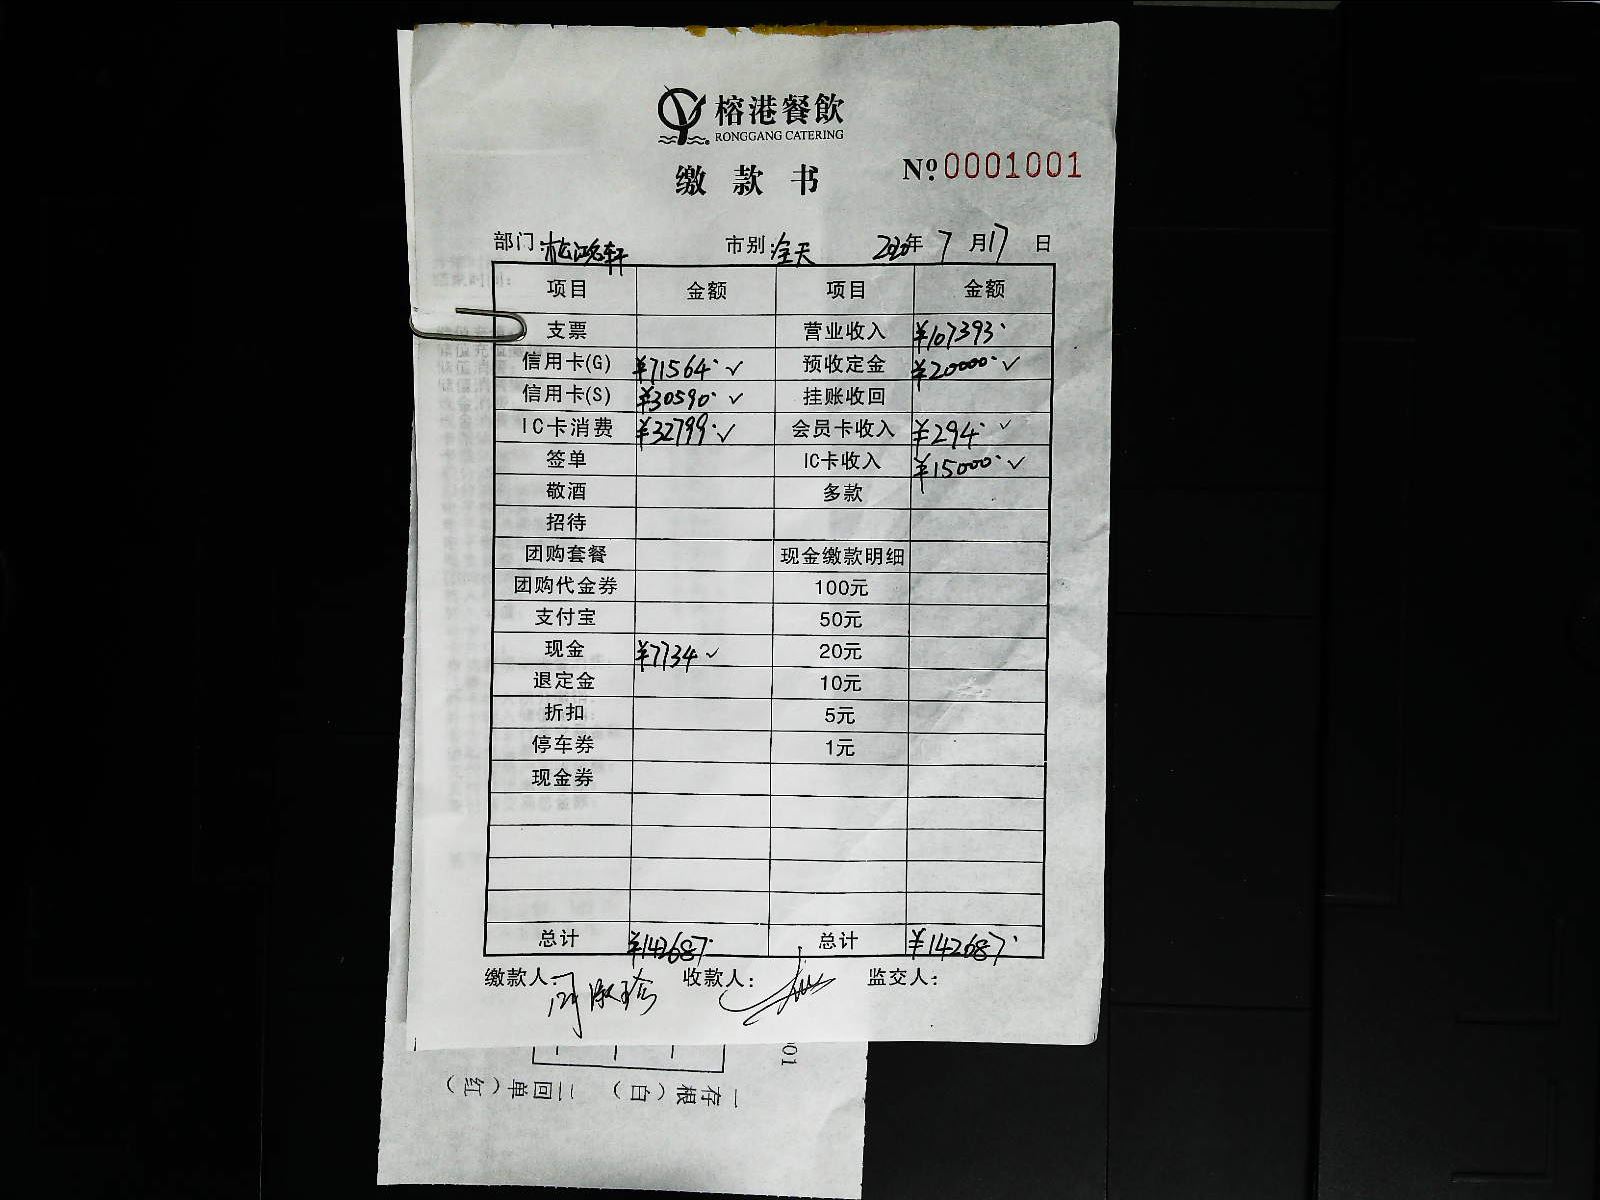 榕港餐飲
RONGGANG CATERING
缴款书
№0001001
部门:松鸿轩 市别:全天 2020年7月17日
项目 金额 项目 金额
支票 营业收入 ¥107393
信用卡(G) ¥71564 ✓ 预收定金 ¥20000 ✓
信用卡(S) ¥30590 ✓ 挂账收回
IC卡消费 ¥32799 ✓ 会员卡收入 ¥294 ✓
签单 IC卡收入 ¥15000 ✓
敬酒 多款
招待
团购套餐 现金缴款明细
团购代金券 100元
支付宝 50元
现金 ¥7734 ✓ 20元
退定金 10元
折扣 5元
停车券 1元
现金券
总计 ¥142687 总计 ¥142687
缴款人: 收款人: 监交人:
01
一存根（白） 二回单（红）